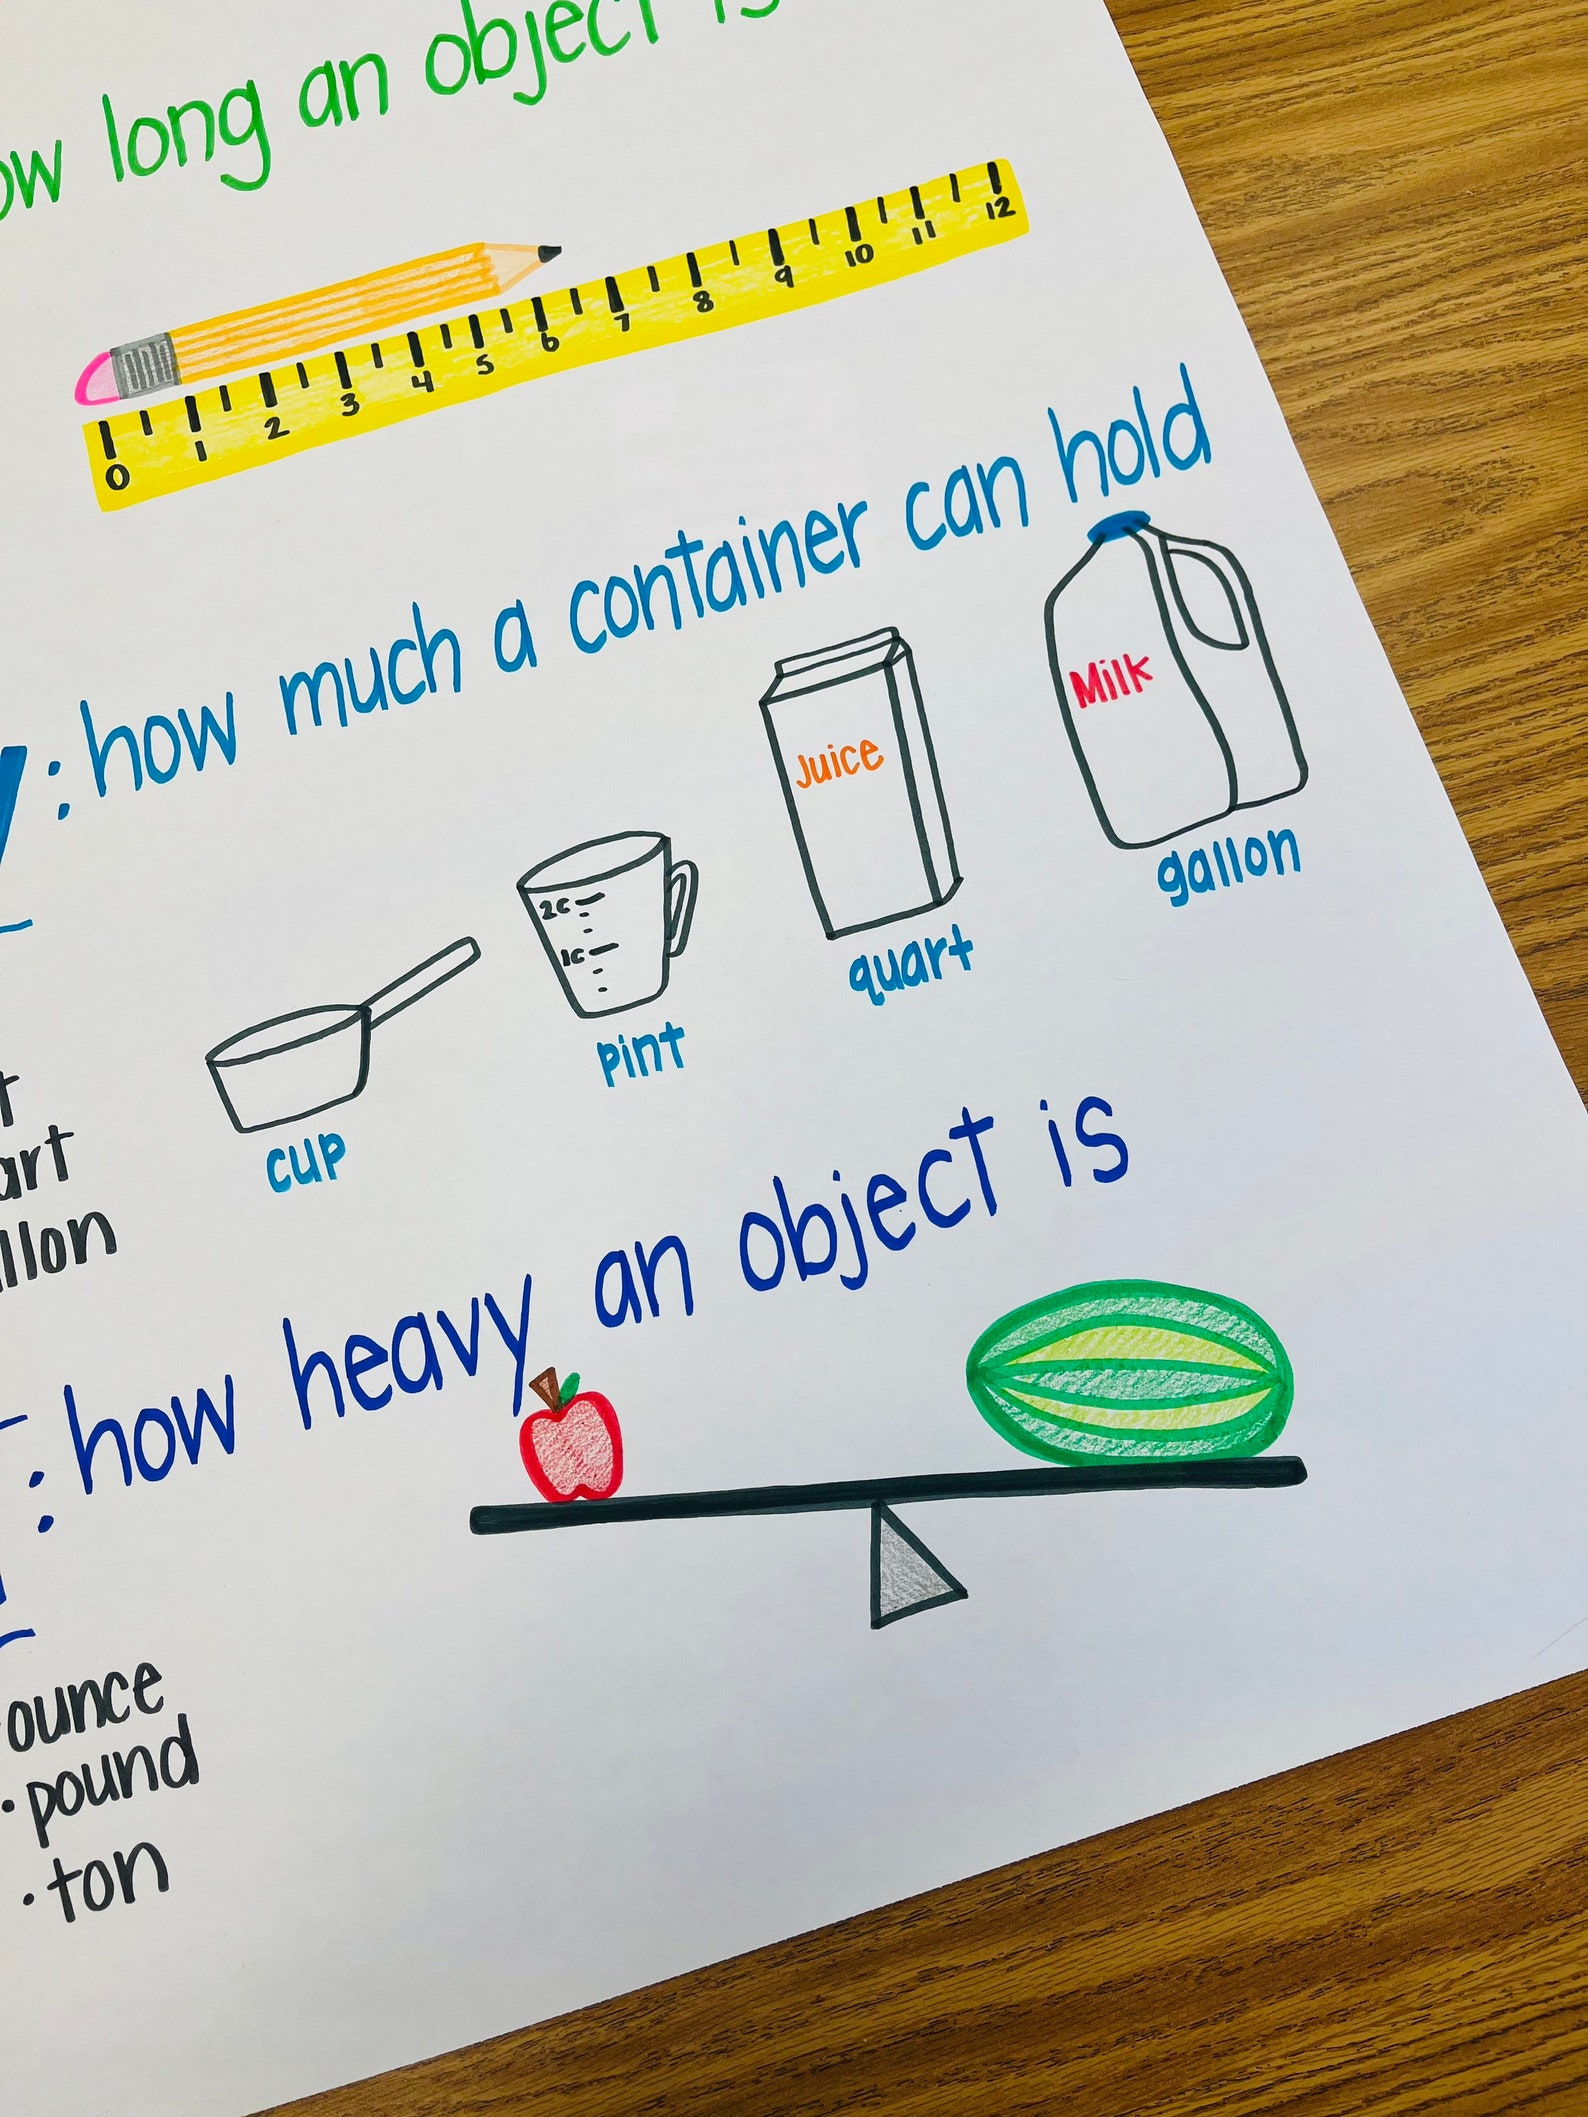 how long an object is
0 1 2 3 4 5 6 7 8 9 10 11 12
: how much a container can hold
Milk
Juice
gallon
2c
1c
quart
pint
cup
art
llon
: how heavy an object is
ounce
• pound
• ton